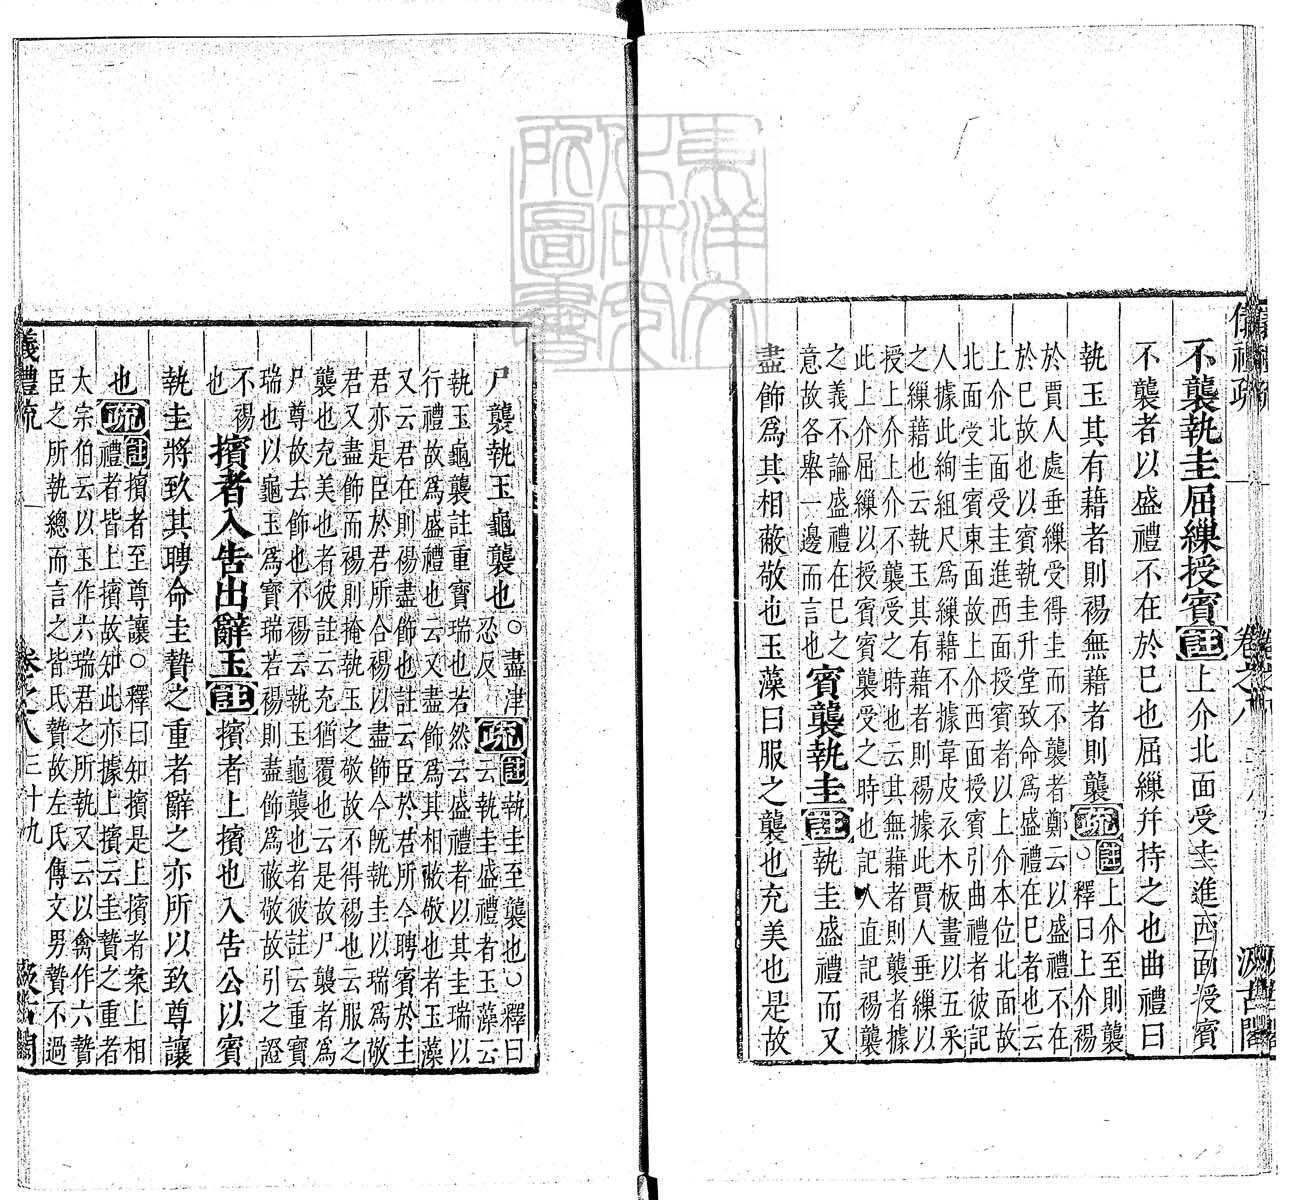 不襲執圭屈繅授賓註上介北面受圭進西面授賓
不襲者以盛禮不在於已也屈繅幷持之也曲禮曰
執玉其有藉者則裼無藉者則襲疏註上介至則襲
○釋曰上介裼
於賈人處垂繅受得圭而不襲者鄭云以盛禮不在
於巳故也以賓執圭升堂致命爲盛禮在巳者也云
上介北面受圭進西面授賓者以上介本位北面故
北面受圭賓東面故上介西面授賓引曲禮者彼記
人據此絢組尺爲繅藉不據韋皮衣木板畫以五采
之繅藉也云執玉其有藉者則裼據此賈人垂繅以
授上介上介不襲受之時也云其無藉者則襲者據
此上介屈繅以授賓賓襲受之時也記人直記裼襲
之義不論盛禮在巳之
意故各舉一邊而言也賓襲執圭註執圭盛禮而又
盡飾爲其相蔽敬也玉藻曰服之襲也充美也是故
尸襲執玉龜襲也○盡津
忍反疏註執圭至襲也○釋曰
云執圭盛禮者玉藻云
執玉龜襲註重寶瑞也若然云盛禮者以其圭瑞以
行禮故爲盛禮也云又盡飾爲其相蔽敬也者玉藻
又云君在則裼盡飾也註云臣於君所今聘賓於主
君亦是臣於君所合裼以盡飾今旣執圭以瑞爲敬
君又盡飾而裼則掩執玉之敬故不得裼也云服之
襲也充美也者彼註云充猶覆也云是故尸襲者爲
尸尊故去飾也不裼云執玉龜襲也者彼註云重寶
瑞也以龜玉爲寶瑞若裼則盡飾爲蔽敬故引之證
不裼
也擯者入告出辭玉註擯者上擯也入告公以賓
執圭將致其聘命圭贄之重者辭之亦所以致尊讓
也疏註擯者至尊讓○釋曰知擯是上擯者案上相
禮者皆上擯故知此亦據上擯云圭贄之重者
大宗伯云以玉作六瑞君之所執又云以禽作六贄
臣之所執總而言之皆氏贄故左氏傳文男贄不過
儀禮疏 卷之八 三十九 汲古閣